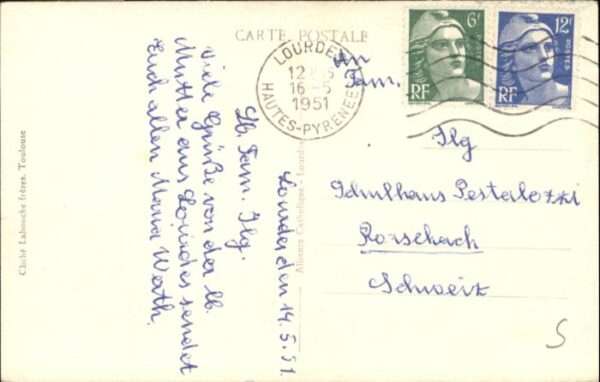 CARTE POSTALE
LOURDES
16-5
1951
HAUTES-PYRENEES
6F
RF
12F
POSTES
RF
An
Fam.
Ilg
Schulhaus Pestalozzi
Rorschach
Schweiz
Lourdes den 14.5.51
Lb. Fam. Ilg.
Viele Grüße von der lb.
Mutter aus Lourdes sendet
Euch allen Maria Werth.
Alliance Catholique - Lourdes
Cliché Labouche frères, Toulouse
S